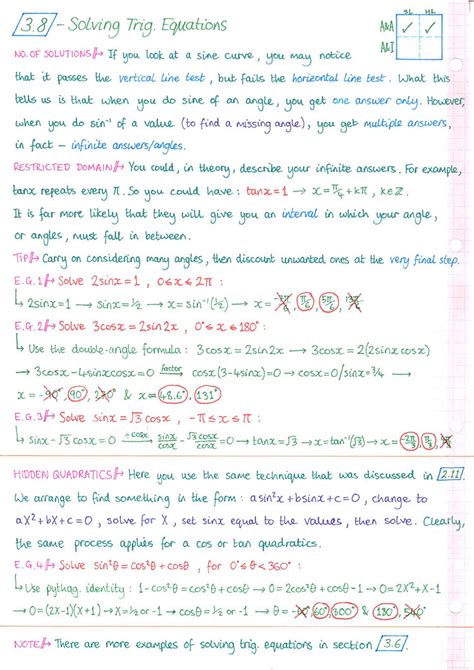 3.8 - Solving Trig. Equations
SL HL
A&A ✓ ✓
A&I
NO. OF SOLUTIONS → If you look at a sine curve, you may notice
that it passes the vertical line test, but fails the horizontal line test. What this
tells us is that when you do sine of an angle, you get one answer only. However,
when you do sin⁻¹ of a value (to find a missing angle), you get multiple answers,
in fact - infinite answers/angles.
RESTRICTED DOMAIN → You could, in theory, describe your infinite answers. For example,
tanx repeats every π. So you could have: tanx=1 → x=π/4+kπ, k∈ℤ.
It is far more likely that they will give you an interval in which your angle,
or angles, must fall in between.
TIP → Carry on considering many angles, then discount unwanted ones at the very final step.
E.G.1 → Solve 2sinx=1, 0≤x≤2π:
↳ 2sinx=1 → sinx=1/2 → x=sin⁻¹(1/2) → x= π/6, 5π/6,
E.G.2 → Solve 3cosx=2sin2x, 0°≤x≤180°:
↳ Use the double-angle formula: 3cosx=2sin2x → 3cosx=2(2sinxcosx)
→ 3cosx-4sinxcosx=0 factor → cosx(3-4sinx)=0 → cosx=0/sinx=3/4 →
x = -90°, 90°, 270° & x=48.6°, 131°
E.G.3 → Solve sinx=√3cosx, -π≤x≤π:
↳ sinx-√3cosx=0 ÷cosx → sinx/cosx - √3cosx/cosx=0 → tanx=√3 → x=tan⁻¹(√3) → x= -2π/3, π/3,
HIDDEN QUADRATICS → Here you use the same technique that was discussed in 2.11.
We arrange to find something in the form: asin²x+bsinx+c=0, change to
aX²+bX+c=0, solve for X, set sinx equal to the values, then solve. Clearly,
the same process applies for a cos or tan quadratics.
E.G.4 → Solve sin²θ=cos²θ+cosθ, for 0°≤θ<360°:
↳ Use pythag. identity: 1-cos²θ=cos²θ+cosθ → 0=2cos²θ+cosθ-1 → 0=2X²+X-1
→ 0=(2X-1)(X+1) → X=1/2 or -1 → cosθ=1/2 or -1 → θ= 60°, 300° & 180°, 540°
NOTE → There are more examples of solving trig. equations in section 3.6.